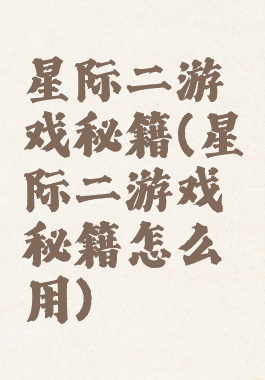 星际二游
戏秘籍(星
际二游戏
秘籍怎么
用)